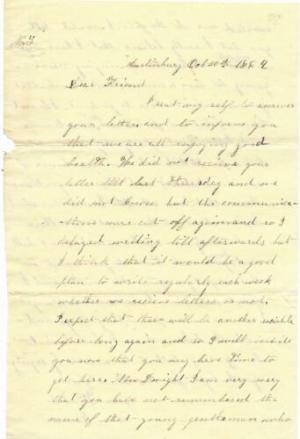 Oct 20th 1862
Dear Friend
I seat my self to answer
your letter and to informe you
that we are all enjoying good
health. We did not receive your
letter till last Thursday and we
did not know but the communica-
tions were cut off again and so I
delayed writing till afterwards but
I think that it would be a good
plan to write regularly each week
whether we receive letters or not.
I expect that there will be another
before long again and so I will
you now that you may have time to
get here. Now Dwight I am very sorry
that you have not remembered the
name of that young gentleman who